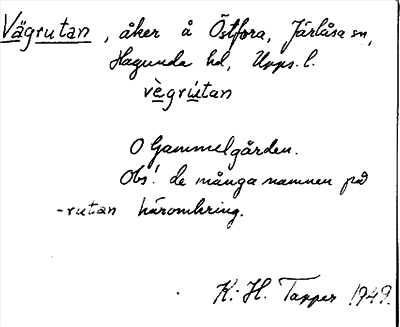 Vägrutan, åker å Östfora, Järlåsa sn,
Hagunda hd, Upps. l.
vègrútan
O Gammelgården.
Obs! de många namnen på
-rutan häromkring.
K: H. Tapper 1949.